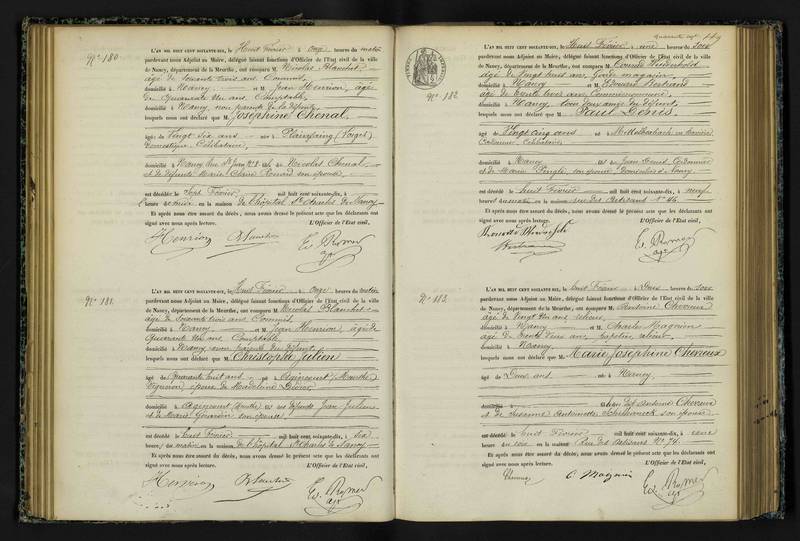 N° 180
L'AN MIL HUIT CENT SOIXANTE-DIX, le Huit Février à onze heures du matin
pardevant nous Adjoint au Maire, délégué faisant fonctions d'Officier de l'Etat civil de la ville
de Nancy, département de la Meurthe, ont comparu M. Nicolas Blanchet
âgé de soixante trois ans, Commis,
domicilié à Nancy et M. Jean Henrion, âgé
de Quarante un ans, Comptable,
domicilié à Nancy, non parents de la défunte
lesquels nous ont déclaré que M. Joséphine Chenal,
âgée de Vingt six ans née à Plainfaing (Vosges)
Domestique, Célibataire,
domiciliée à Nancy, rue St Jean N° fille de Nicolas Chenal,
et de défunte Marie Claire son épouse,
est décédée le sept Février mil huit cent soixante-dix, à
heure de en la maison de l'hôpital St Charles de Nancy
Et après nous être assuré du décès, nous avons dressé le présent acte que les déclarants ont
signé avec nous après lecture. L'Officier de l'Etat civil,
Henrion
Ed. Romer
adj
N° 181.
L'AN MIL HUIT CENT SOIXANTE-DIX, le Huit Février à onze heures du matin
pardevant nous Adjoint au Maire, délégué faisant fonctions d'Officier de l'Etat civil de la ville
de Nancy, département de la Meurthe, ont comparu M. Nicolas Blanchet
âgé de soixante trois ans, Commis,
domicilié à Nancy et M. Jean Henrion, âgé de
Quarante un ans, Comptable,
domicilié à Nancy, non parents du défunt
lesquels nous ont déclaré que M. Christophe Julien
âgé de Quarante huit ans né à Agincourt (Meurthe)
Vigneron, époux de Madeleine
domicilié à Agincourt (Meurthe) fils de défunts Jean Julien
et de Marie son épouse
est décédé le huit Février mil huit cent soixante-dix, à six
heures du matin, en la maison de l'hôpital St Charles de Nancy
Et après nous être assuré du décès, nous avons dressé le présent acte que les déclarants ont
signé avec nous après lecture. L'Officier de l'Etat civil,
Henrion
Ed. Romer
adj
Quarante sept
N° 182
L'AN MIL HUIT CENT SOIXANTE-DIX, le Huit Février à une heure du soir
pardevant nous Adjoint au Maire, délégué faisant fonctions d'Officier de l'Etat civil de la ville
de Nancy, département de la Meurthe, ont comparu M.
âgé de Vingt huit ans, Garde magasin,
domicilié à Nancy et M. Edouard Bertrand
âgé de trente trois ans, Commissionnaire,
domicilié à Nancy, tous deux amis du défunt
lesquels nous ont déclaré que M. Paul Denis,
âgé de Vingt cinq ans né à Mittelbexbach en Bavière
Cordonnier, Célibataire
domicilié à Nancy fils de Jean Denis Cordonnier
et de Marie son épouse Domiciliés à Nancy
est décédé le huit Février mil huit cent soixante-dix, à neuf
heures du matin en la maison rue des Artisans N° 46
Et après nous être assuré du décès, nous avons dressé le présent acte que les déclarants ont
signé avec nous après lecture. L'Officier de l'Etat civil,
Bertrand
Ed. Romer
adj
N° 183.
L'AN MIL HUIT CENT SOIXANTE-DIX, le huit Février à deux heures du soir
pardevant nous Adjoint au Maire, délégué faisant fonctions d'Officier de l'Etat civil de la ville
de Nancy, département de la Meurthe, ont comparu M. Antoine Chevreux
âgé de Vingt un ans
domicilié à Nancy et M. Charles Magnien
âgé de trente deux ans,
domicilié à Nancy,
lesquels nous ont déclaré que M. Marie Joséphine Chevreux
âgée de Deux ans née à Nancy
domiciliée à fille dudit Antoine Chevreux
et de Suzanne Antoinette son épouse
est décédée le huit Février mil huit cent soixante-dix, à
heure du en la maison Rue des Artisans N° 74.
Et après nous être assuré du décès, nous avons dressé le présent acte que les déclarants ont
signé avec nous après lecture. L'Officier de l'Etat civil,
C. Magnien
Ed. Romer
adj